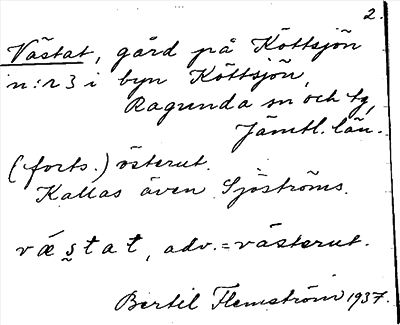 2.
Västat, gård på Köttsjön
n:r 3 i byn Köttsjön,
Ragunda sn och tg,
Jämtl. län.
(forts.) österut.
Kallas även Sjöströms.
væstat, adv. = västerut.
Bertil Flemström 1937.